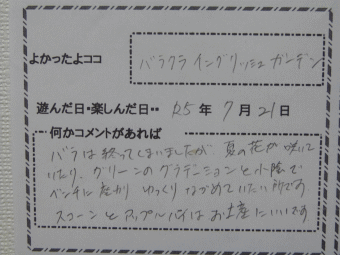 よかったよココ
バラクラ イングリッシュ ガーデン
遊んだ日・楽しんだ日・・ R5 年 7 月 21 日
何かコメントがあれば
バラは終ってしまいましたが、夏の花が咲いて
いたり、グリーンのグラデーションと木陰で
ベンチに座り ゆっくり ながめていたい所です。
スコーンとアップルパイはお土産にいいです